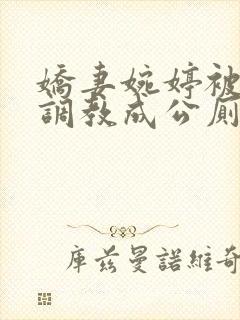 嬌妻婉婷被
調教成公厕
庫茲曼諾維奇